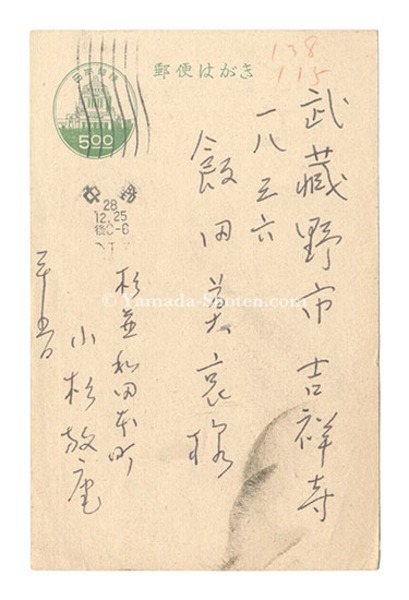 郵便はがき
日本郵便
5.00
138
115
28
12.25
武蔵野市吉祥寺
一八三六
飯田莫哀様
杉並和田本町
小杉放庵
© Yamada-Shoten.com